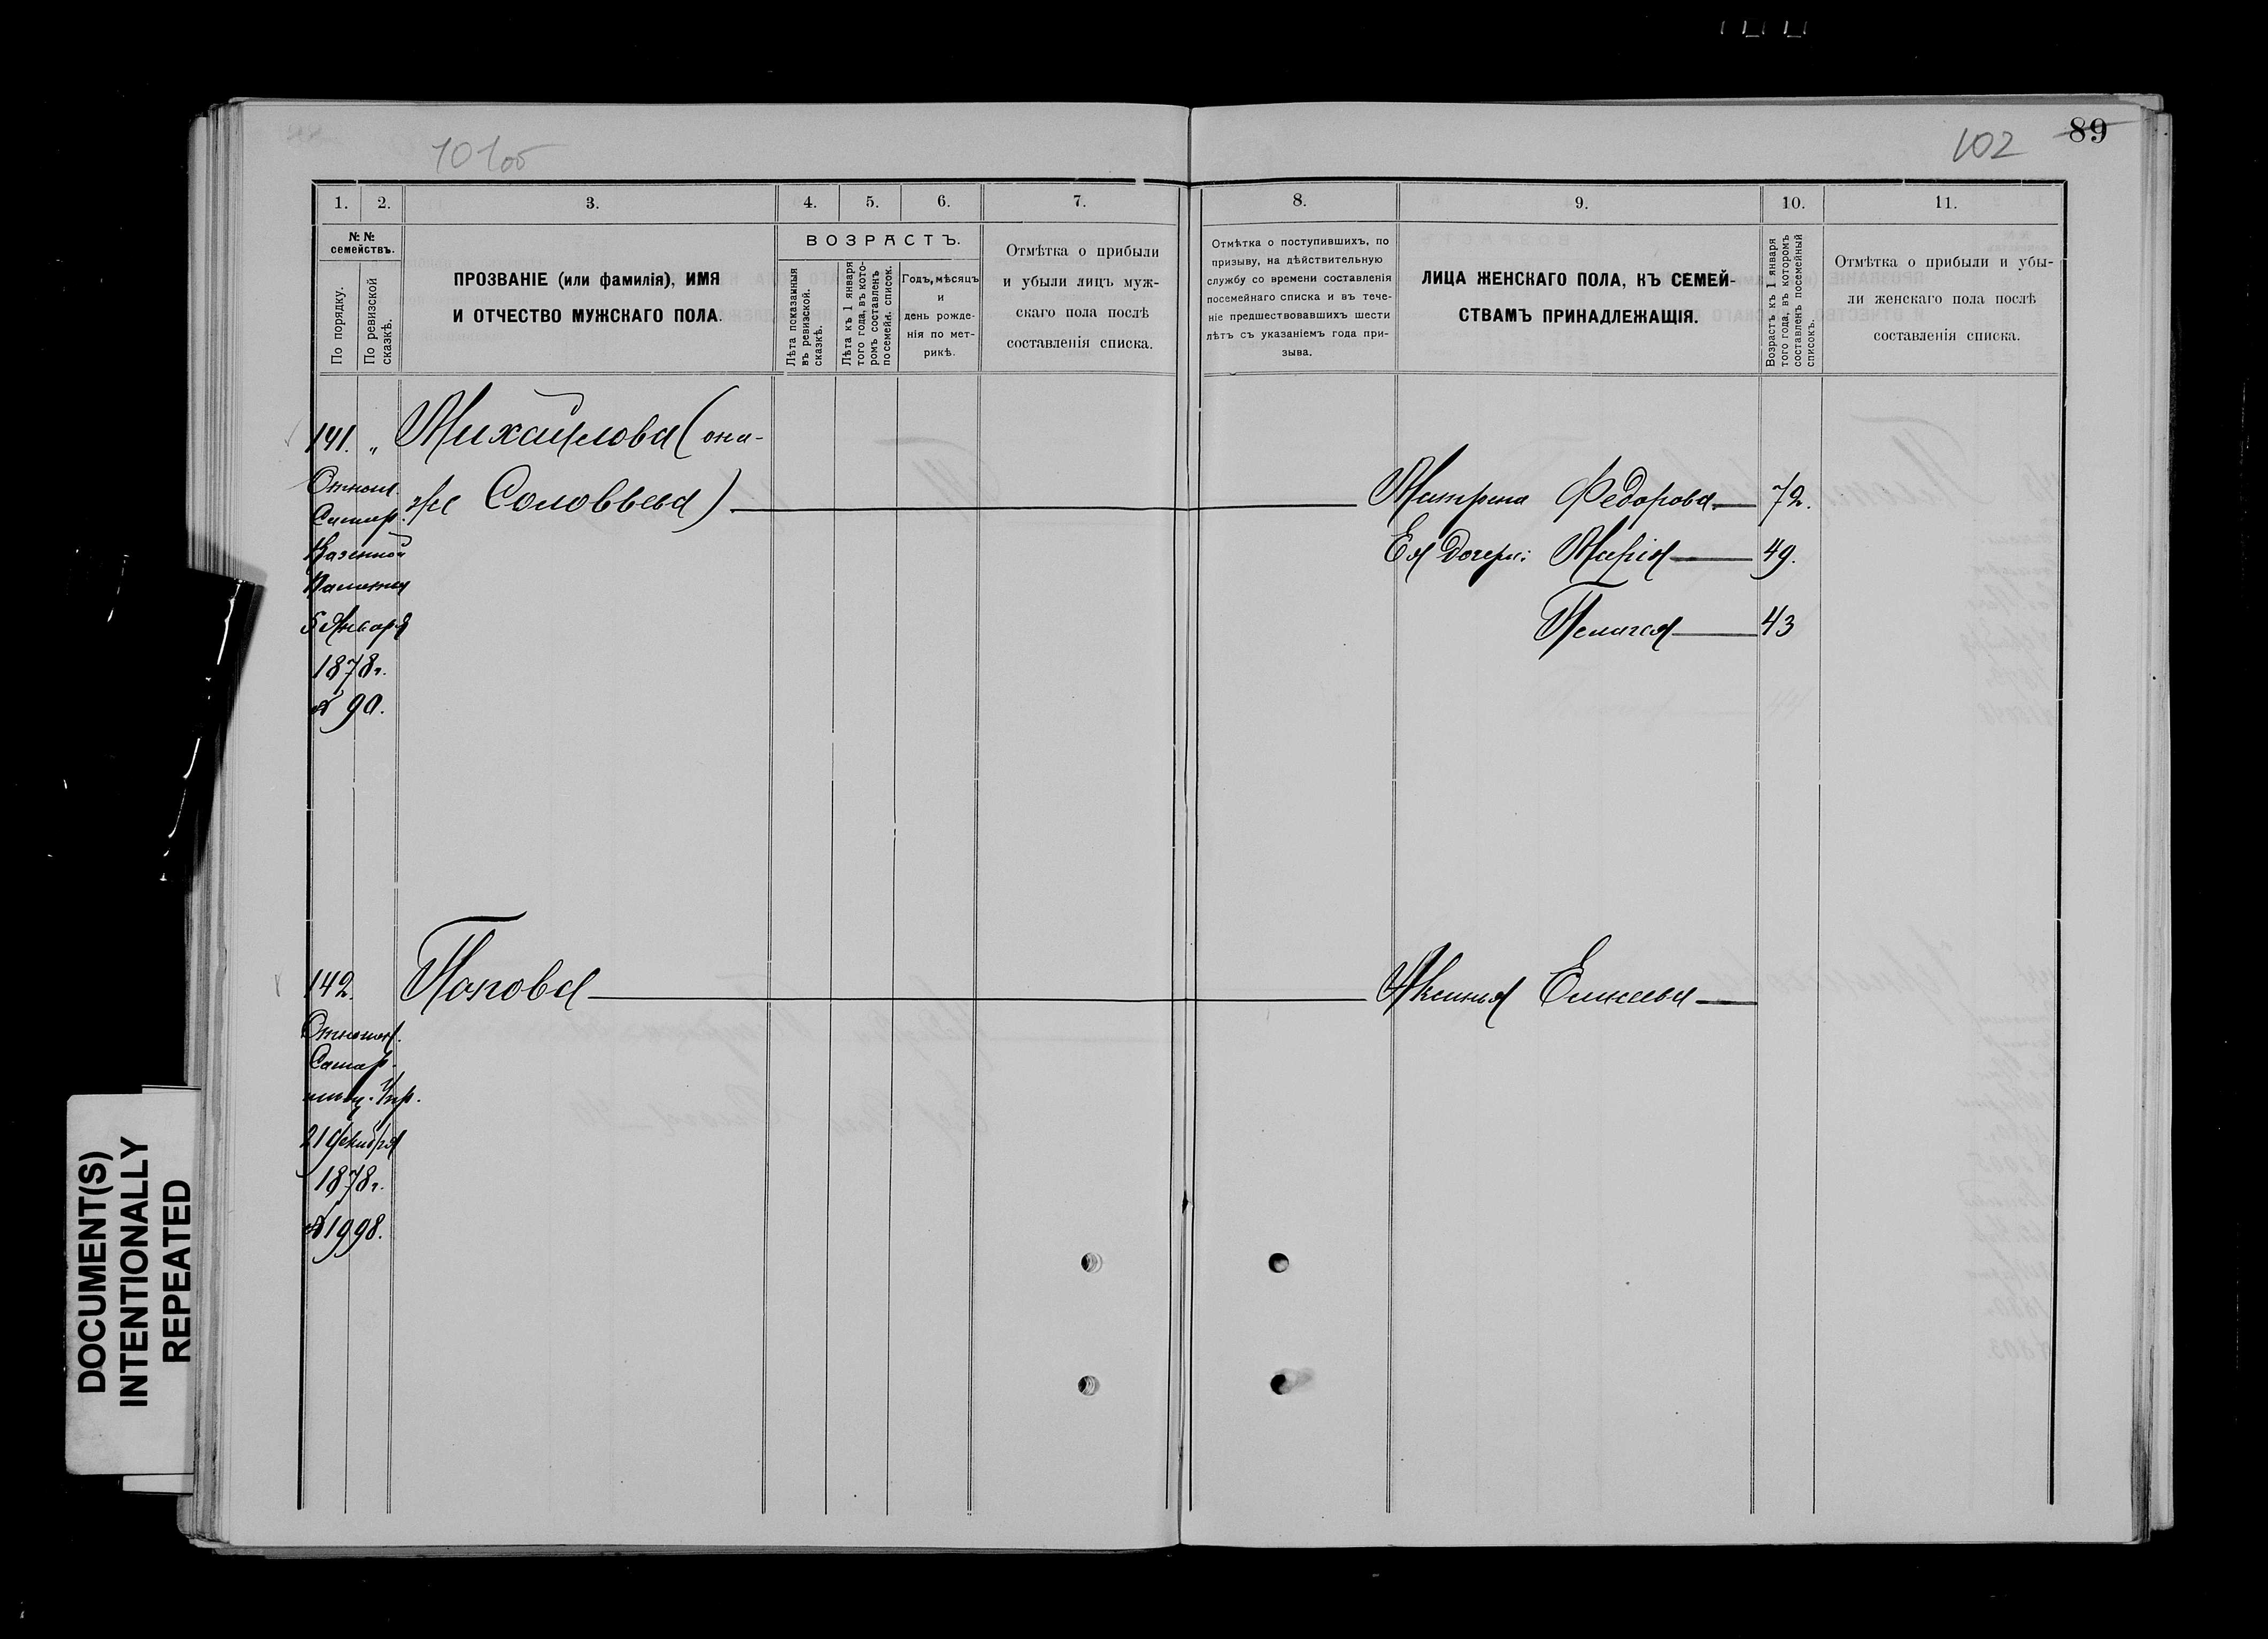 101 об
102 89
1. 2. 3. 4. 5. 6. 7. 8. 9. 10. 11.
№ №
семействъ.
По порядку.
По ревизской
сказкѣ.
ПРОЗВАНІЕ (или фамилія), ИМЯ
И ОТЧЕСТВО МУЖСКАГО ПОЛА.
ВОЗРАСТЪ.
Лѣта показанныя
въ ревизской.
сказкѣ.
Лѣта къ 1 января
того года, въ кото-
ромъ составленъ
посемейн. список.
Годъ, мѣсяцъ
и
день рожде-
нія по мет-
рикѣ.
Отмѣтка о прибыли
и убыли лицъ муж-
скаго пола послѣ
составленія списка.
Отмѣтка о поступившихъ, по
призыву, на дѣйствительную
службу со времени составленія
посемейнаго списка и въ тече-
ніе предшествовавшихъ шести
лѣтъ съ указаніемъ года при-
зыва.
ЛИЦА ЖЕНСКАГО ПОЛА, КЪ СЕМЕЙ-
СТВАМЪ ПРИНАДЛЕЖАЩІЯ.
Возрастъ къ 1 января
того года, въ которомъ
составленъ посемейный
списокъ.
Отмѣтка о прибыли и убы-
ли женскаго пола послѣ
составленія списка.
141. " Михайлова (она-
же Соловьева) Матрена Федорова 72.
Ея дочери: Марія 49.
Пелагея 43
Отнош.
Самар.
Казенной
Палаты
5 Января
1878 г.
№ 90.
142. Попова Аксинья Елисеева
Отношен.
Самар.
мѣщ. Упр.
21 Декабря
1878 г.
№ 1998.
DOCUMENT(S)
INTENTIONALLY
REPEATED